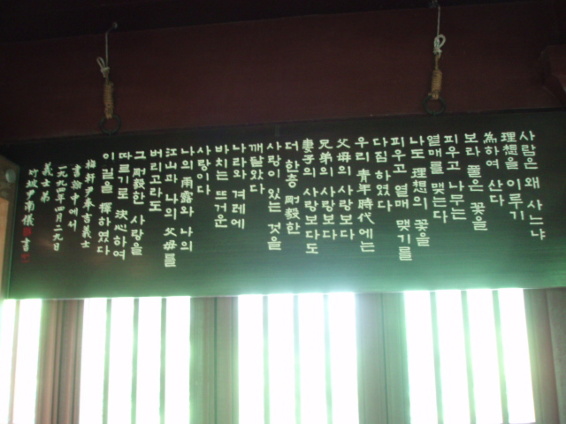 사람은 왜 사는냐
理想을 이루기
為하여 산다
보라 풀은 꽃을
피우고 나무는
열매를 맺는다
나도 理想의 꽃을
피우고 열매 맺기를
다짐하였다
우리 青年時代에는
父母의 사랑보다
兄弟의 사랑보다
妻子의 사랑보다도
더 한층 剛毅한
사랑이 있는 것을
깨달았다
나라와 겨레에
바치는 뜨거운
사랑이다
나의 雨露와 나의
江山과 나의 父母를
버리고라도
그 剛毅한 사랑을
따르기로 決心하여
이 길을 擇하였다
梅軒 尹奉吉義士
書翰中에서
一九九四年四月二九日
義士弟
竹坡 尹南儀 書